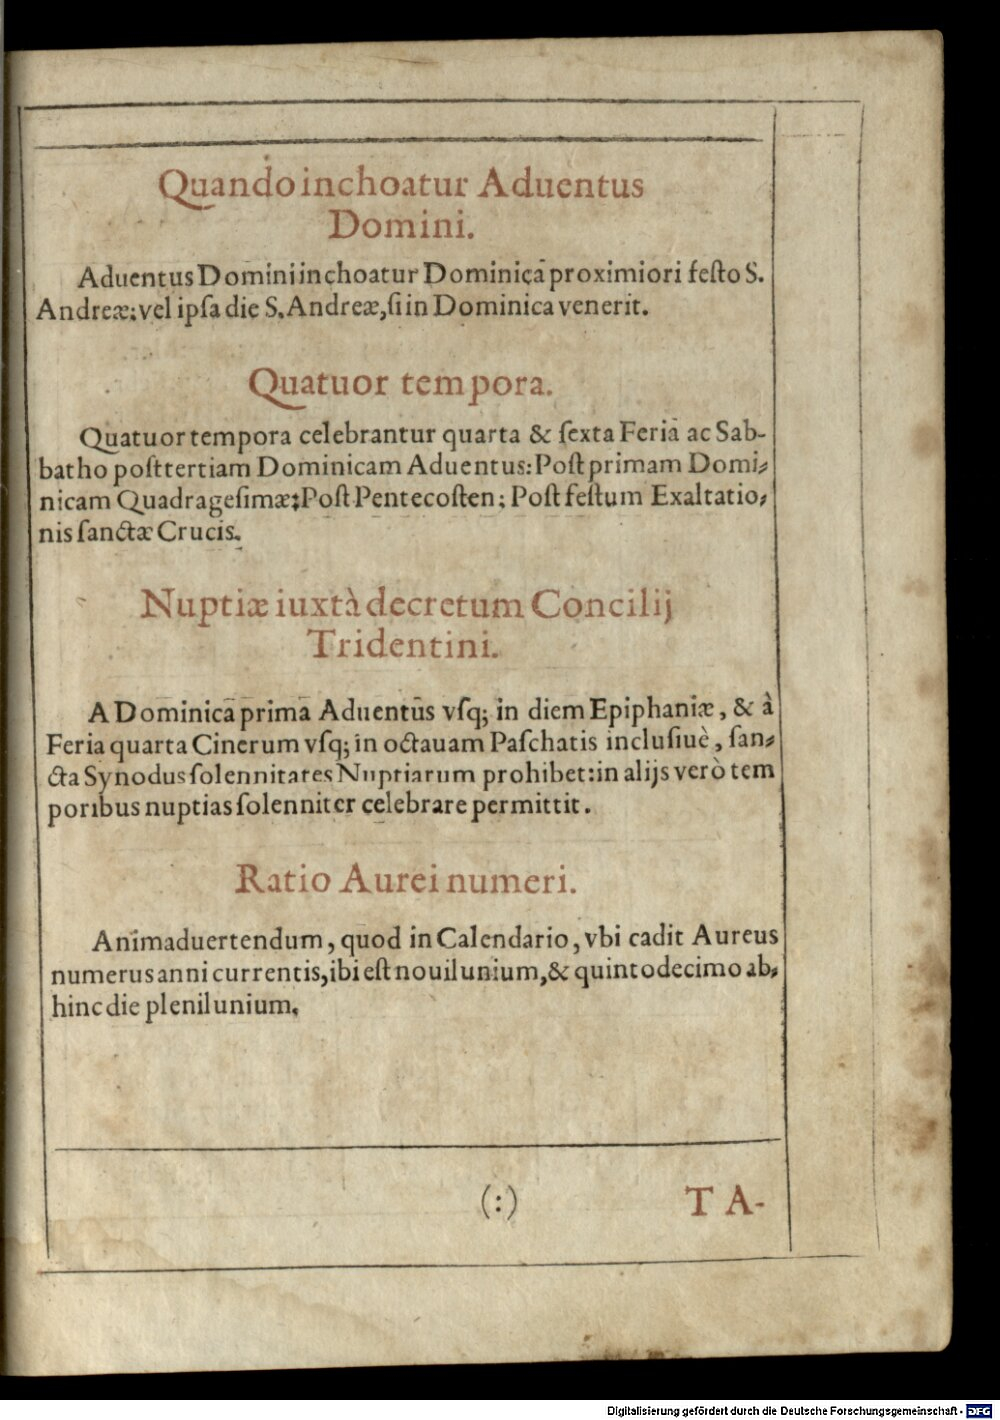 Quando inchoatur Aduentus
Domini.
Aduentus Domini inchoatur Dominicā proximiori feſto S.
Andreæ: vel ipſa die S. Andreæ, ſi in Dominica venerit.
Quatuor tempora.
Quatuor tempora celebrantur quarta & ſexta Feriā ac Sab-
batho poſt tertiam Dominicam Aduentus: Poſt primam Domi-
nicam Quadrageſimæ: Poſt Pentecoſten; Poſt feſtum Exaltatio-
nis ſanctæ Crucis.
Nuptiæ iuxtà decretum Concilij
Tridentini.
A Dominicā primā Aduentūs vſq; in diem Epiphaniæ, & à
Feria quarta Cinerum vſq; in octauam Paſchatis incluſiuè, ſan-
cta Synodus ſolennitates Nuptiarum prohibet: in alijs verò tem
poribus nuptias ſolenniter celebrare permittit.
Ratio Aurei numeri.
Animaduertendum, quod in Calendario, vbi cadit Aureus
numerus anni currentis, ibi eſt nouilunium, & quintodecimo ab-
hinc die plenilunium.
(:) TA-
Digitalisierung gefördert durch die Deutsche Forschungsgemeinschaft - DFG